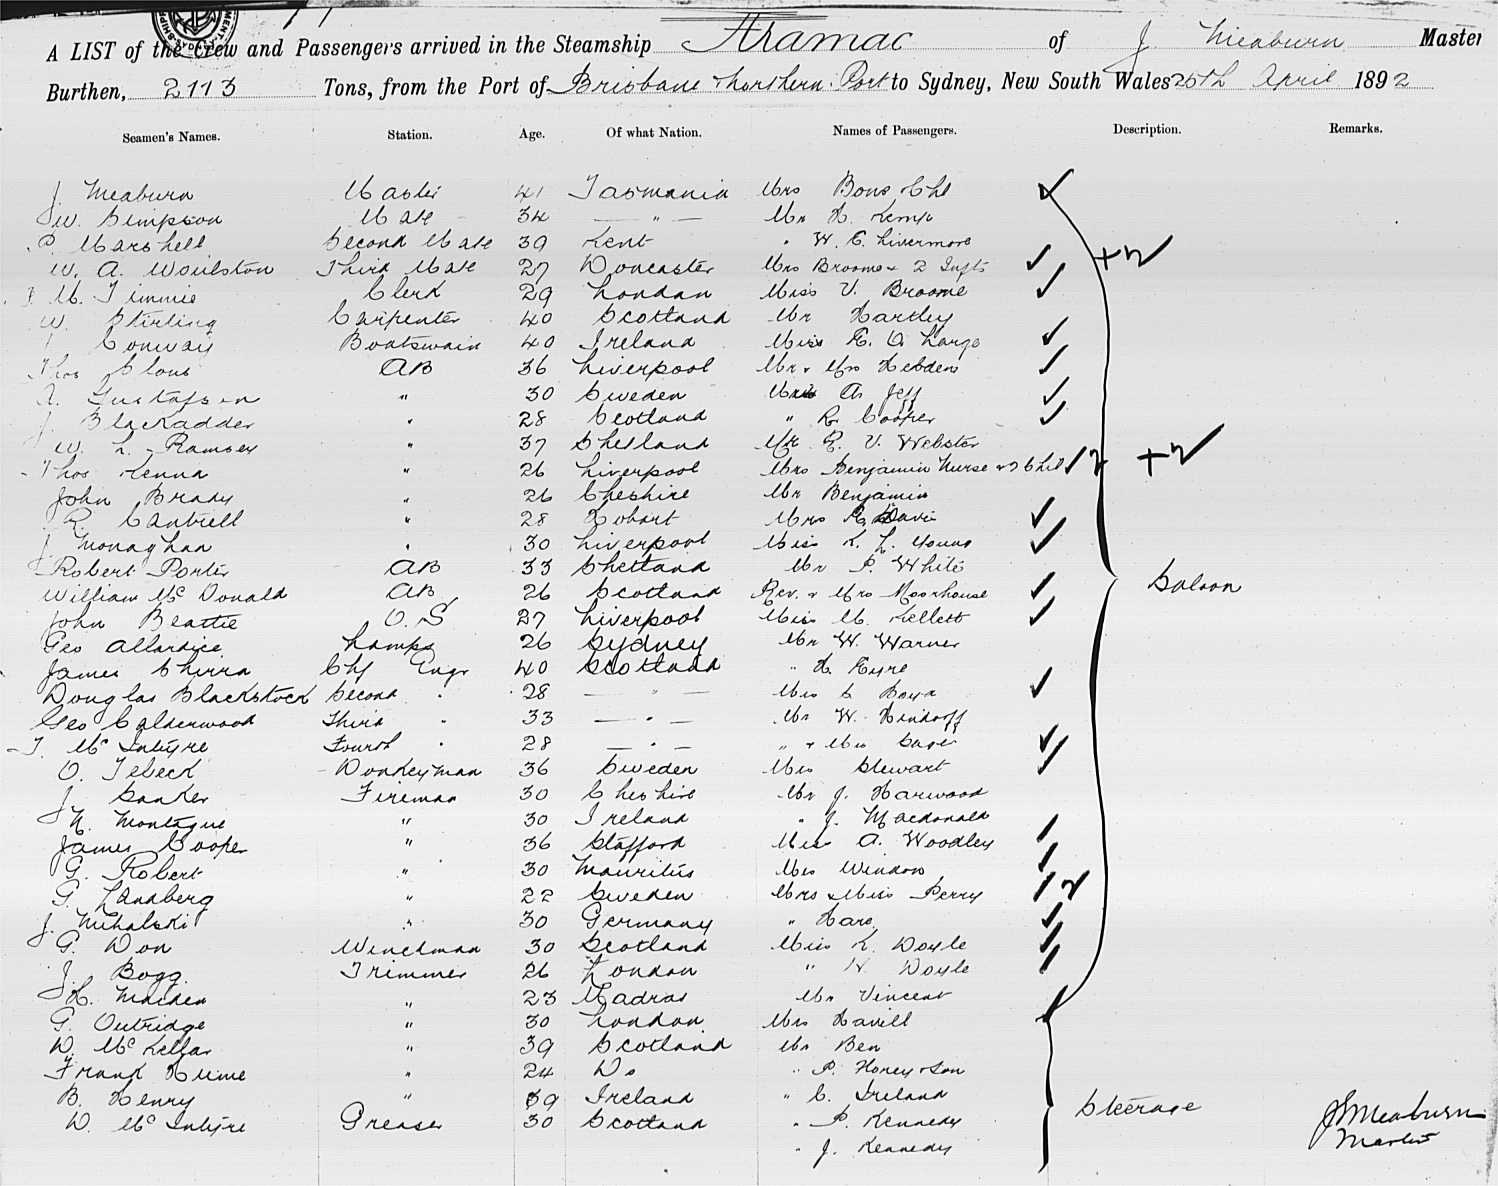 A LIST of the Crew and Passengers arrived in the Steamship Aramac of J. Meaburn Master
Burthen, 2113 Tons, from the Port of Brisbane & Northern Port to Sydney, New South Wales 25th April 1892
Seamen's Names. Station. Age. Of what Nation. Names of Passengers. Description. Remarks.
J. Meaburn Master 41 Tasmania Mrs Bous & Chl
W. Simpson Mate 34 — " — Mr H. Kemp
P. Marshell Second Mate 39 Kent " W. C. Livermore
W. A. Woulston Third Mate 27 Doncaster Mrs Broome & 2 Infts +2
M. Timmie Clerk 29 London Miss V. Broome
W. Stirling Carpenter 40 Scotland Mr Hartley
Conway Boatswain 40 Ireland Miss E. O. Large
Thos Slous AB 36 Liverpool Mr & Mrs Hebden
A. Gustafsen " 30 Sweden Mrs A. Jeff
J. Blackadder " 28 Scotland " R. Cooper
W. L. Ramsey " 37 Shetland Mr E. V. Webster
Thos Kenna " 26 Liverpool Mrs Benjamin Nurse & 2 Chil 2 +2
John Brady " 26 Cheshire Mr Benjamin
R. Cantrell " 28 Hobart Mrs Davis
J. Monaghan " 30 Liverpool Miss K. L. Young
Robert Porter AB 33 Shetland Mr P. White
William McDonald AB 26 Scotland Rev. & Mrs Moorhouse Saloon
John Beattie O.S 27 Liverpool Miss M. Kellett
Geo Allardice Lamps 26 Sydney Mr W. Warner
James Shirra Chf Engr 40 Scotland " H. Eyre
Douglas Blackstock Second " 28 — " — Mrs C. Boyd
Geo Calderwood Third " 33 — " — Mr W. Hindorff
T. McIntyre Fourth " 28 — " — " & Mrs
O. Tebeck Donkeyman 36 Sweden Mrs Stewart
J. Banker Fireman 30 Cheshire Mr J. Harwood
N. Montague " 30 Ireland " J. Macdonald
James Cooper " 36 Stafford Miss A. Woodley
G. Robert " 30 Mauritius Mrs Windows
G. Landberg " 22 Sweden Mrs & Miss Perry 2
J. Mihalski " 30 Germany " Hare
G. Don Winchman 30 Scotland Miss K. Doyle
J. Bogg Trimmer 26 London " H. Doyle
H. Maiden " 23 Madras Mr Vincent
G. Outridge " 30 London Mrs Havill
D. McKellar " 39 Scotland Mr Ben
Frank Hume " 24 Do " P. Honey & Son
B. Henry " 39 Ireland " C. Ireland Steerage
D. McIntyre Greaser 30 Scotland " P. Kennedy J Meaburn
" J. Kennedy Master